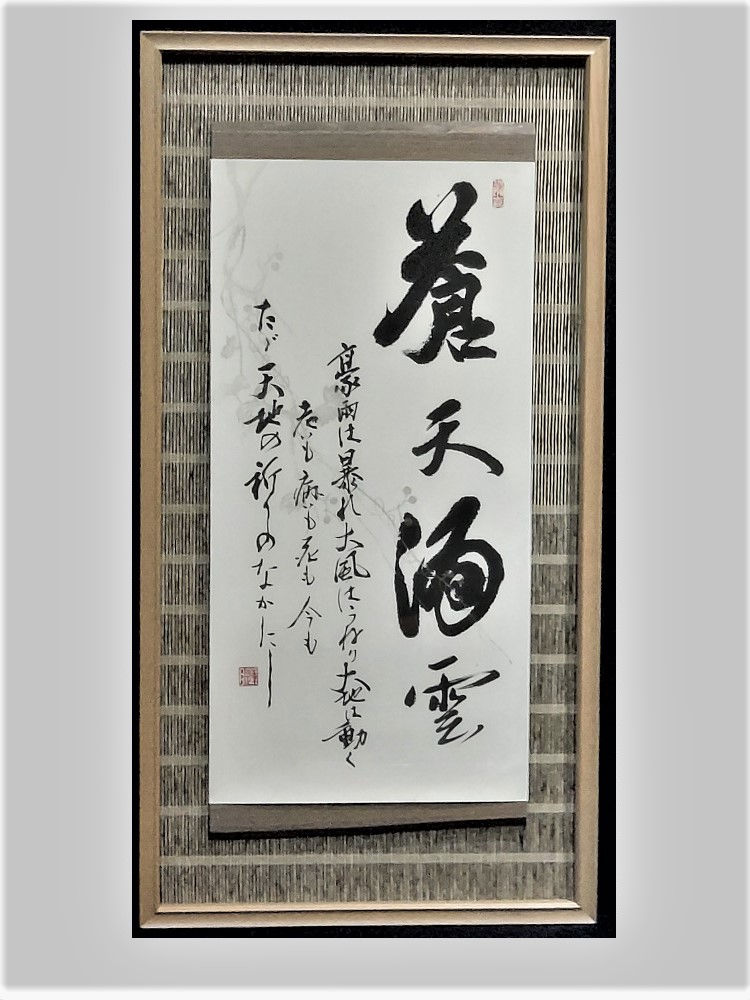 蒼天涌雲
豪雨は暴れ大風はうねり大地は動く
老も病も死も今も
たゞ天地の祈りのなかに